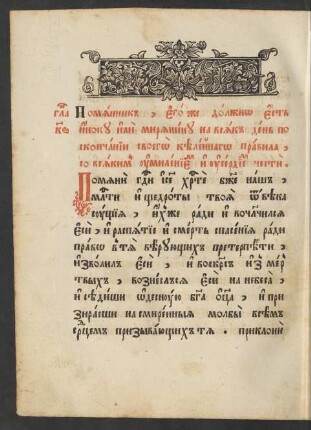 Помѧнникъ, Егоже должно есть
иноку или мирянину на всѧкъ день по
скончании своегѡ келейнагѡ правила,
со всѧкимъ умиленіемъ и усердіемъ чести.
Помѧни гди їсе хрте бже нашъ,
млти и щедроты твоѧ ѿ вѣка
сущыѧ, ихже ради и вочлчилсѧ
еси, и распѧтїе и смерть спасенїѧ ради
правѡ в тѧ вѣрующихъ претерпѣти,
изволилъ еси, и воскрсъ из мер
твыхъ, вознеслсѧ еси на небеса,
и сѣдиши ѡдесную бга оца, и при
зираеши на смиренныѧ молбы всѣмъ
срцемъ призывающихъ тѧ. приклони